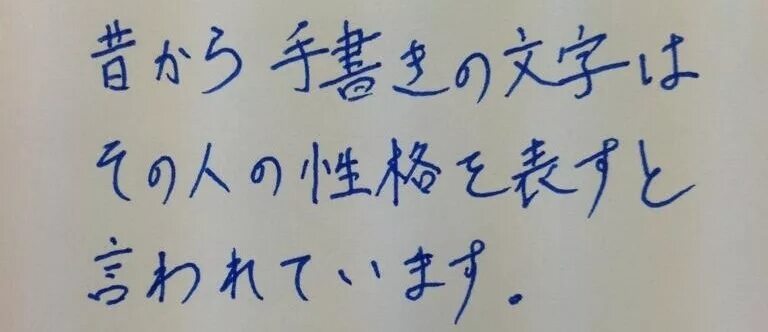 昔から手書きの文字は
その人の性格を表すと
言われています。